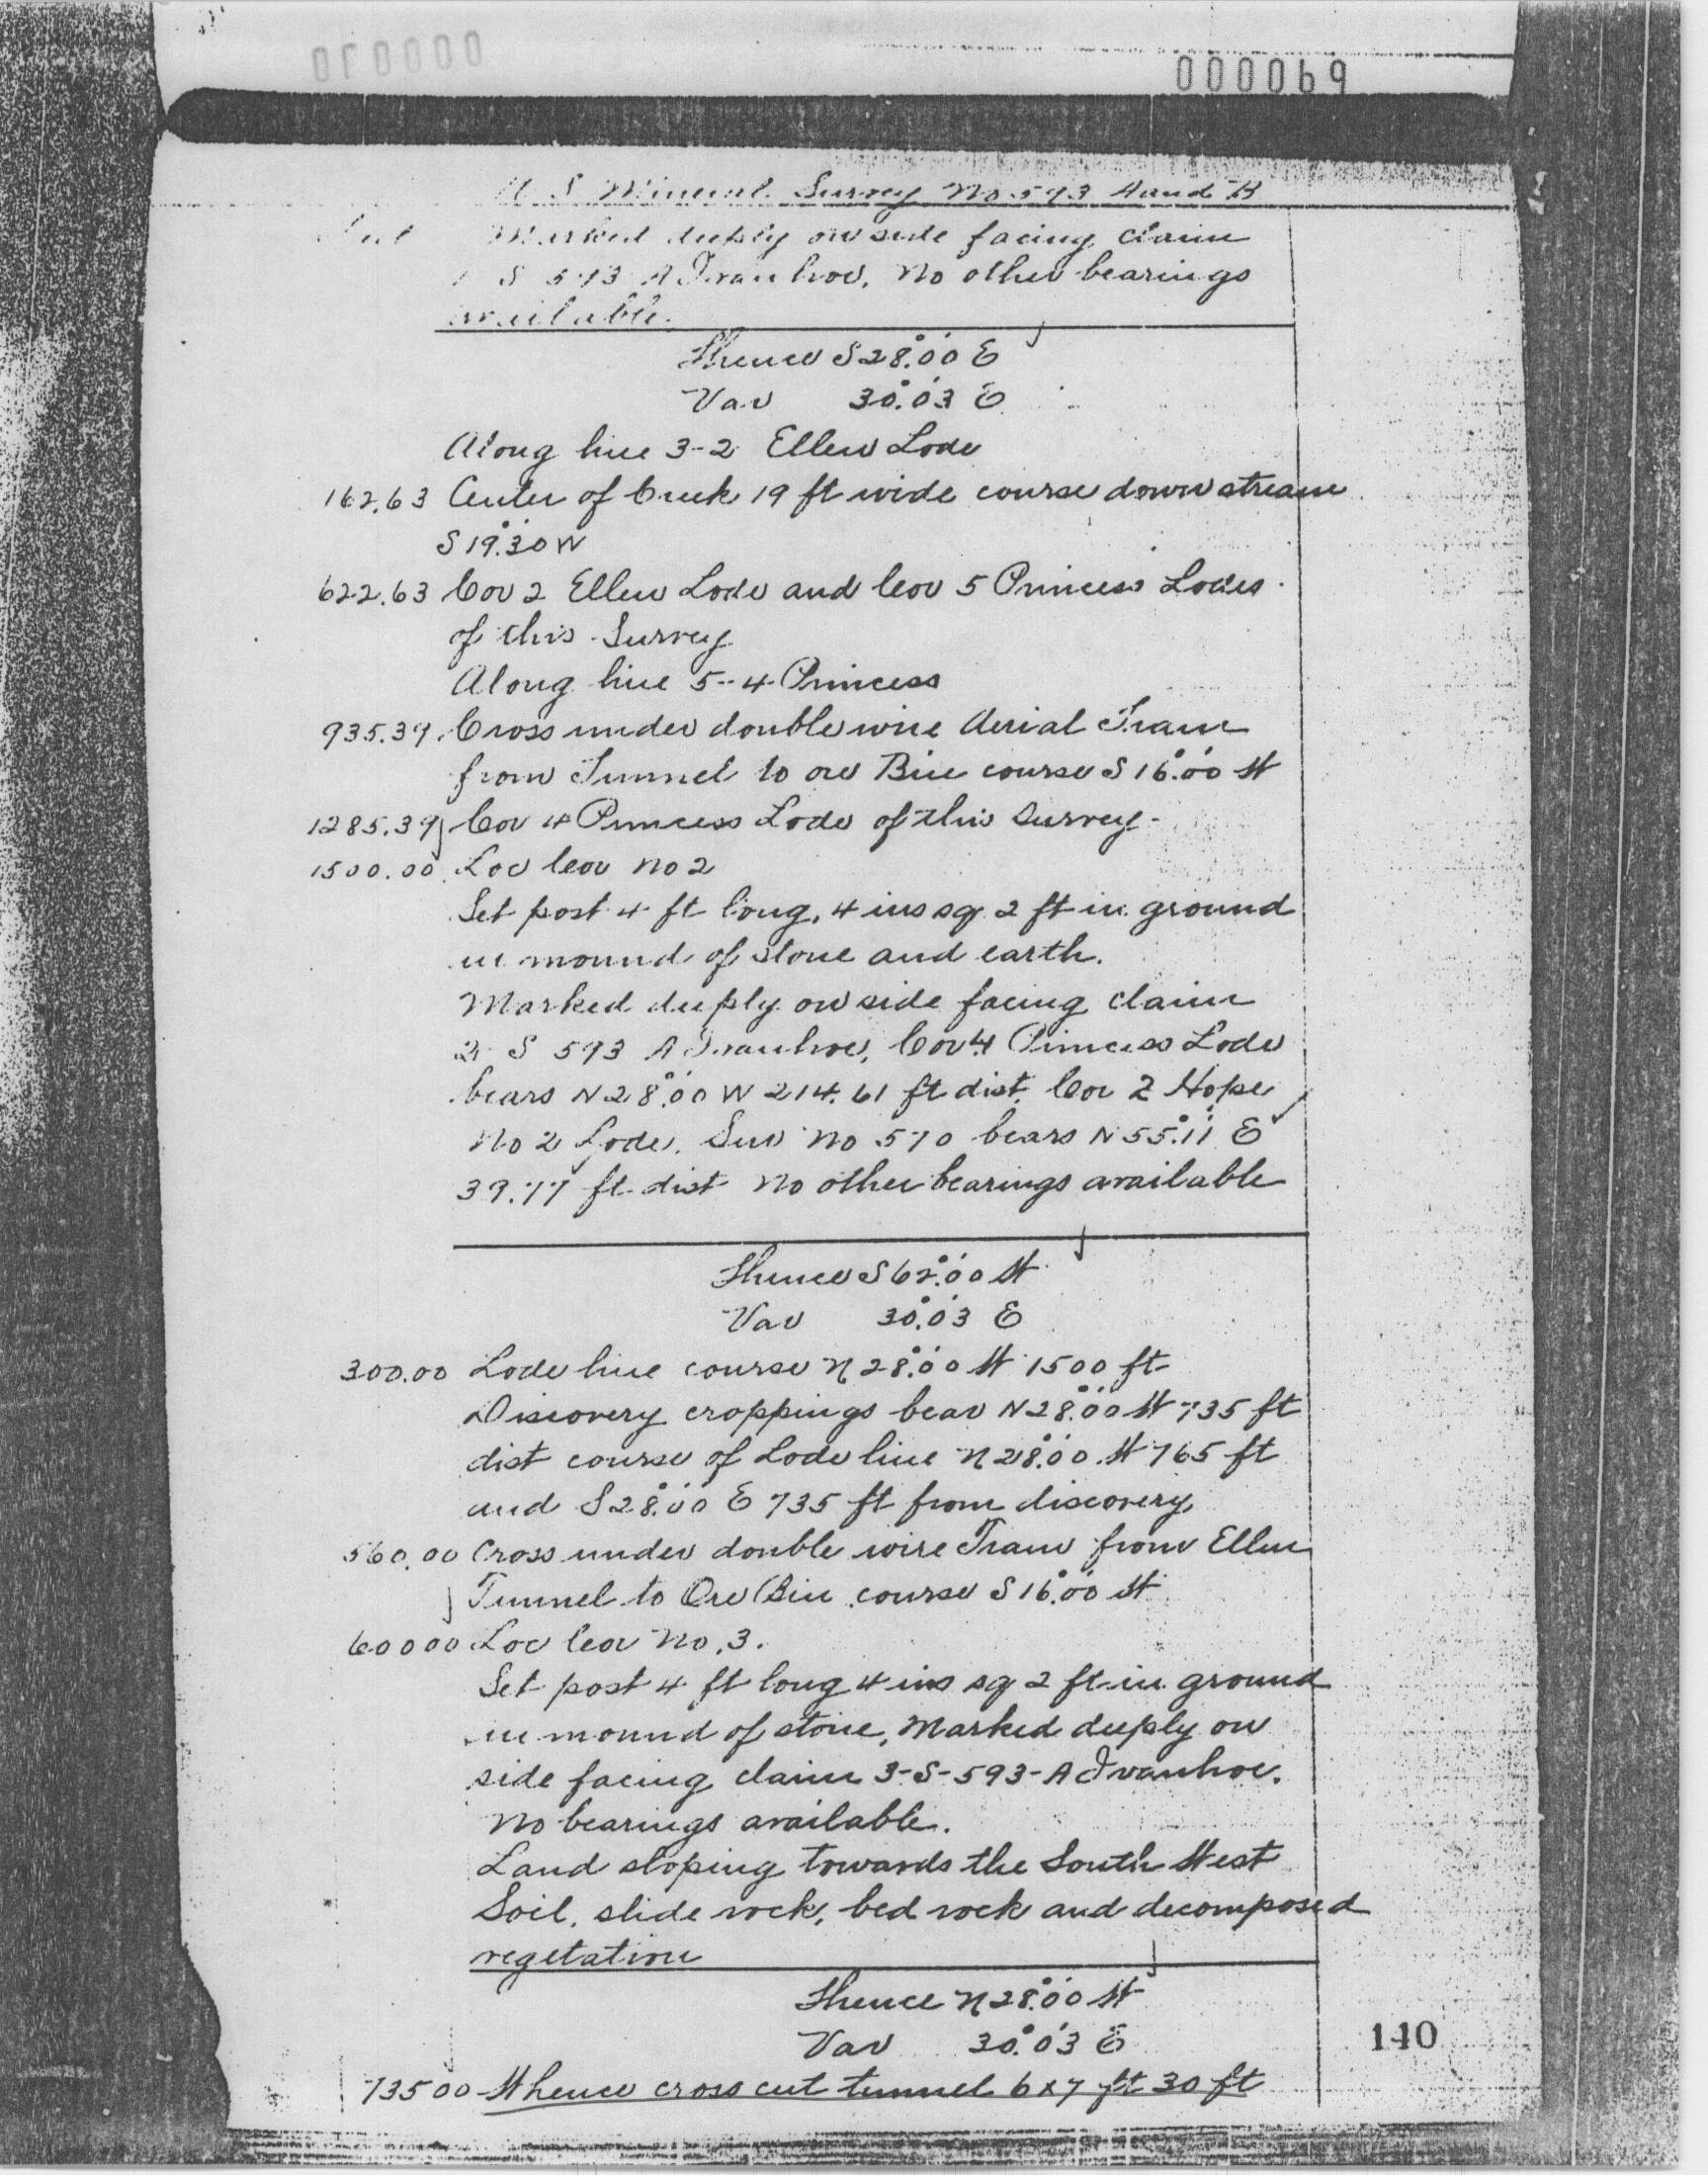 000070
000069
U S Mineral Survey No 593 A and B
Feet Marked deeply on side facing claim
1 S 593 A Ivanhoe, No other bearings
available.
Thence S 28°.00' E
Var 30°.03' E
Along line 3-2 Ellen Lode
162.63 Center of Creek 19 ft wide course down stream
S 19°.30' W
622.63 Cor 2 Ellen Lode and Cor 5 Princess Lodes
of this Survey
Along line 5-4 Princess
935.39 Cross under double wire Aerial Tram
from Tunnel to ore Bin course S 16°.00' W
1285.39 Cor 4 Princess Lode of this Survey-
1500.00 Loc Cor No 2
Set post 4 ft long, 4 ins sq 2 ft in ground
in mound of stone and earth.
Marked deeply on side facing claim
2 S 593 A Ivanhoe, Cor 4 Princess Lode
bears N 28°.00' W 214.61 ft dist. Cor 2 Hope
No 2 Lode, Sur No 570 bears N 55°.11' E
39.77 ft dist No other bearings available
Thence S 62°.00' W
Var 30°.03' E
300.00 Lode line course N 28°.00' W 1500 ft
Discovery croppings bear N 28°.00' W 735 ft
dist course of Lode line N 28°.00' W 765 ft
and S 28°.00' E 735 ft from discovery
560.00 Cross under double wire Tram from Ellen
Tunnel to Ore Bin course S 16°.00' W
600 00 Loc Cor No. 3.
Set post 4 ft long 4 ins sq 2 ft in ground
in mound of stone, Marked deeply on
side facing claim 3-S-593-A Ivanhoe.
No bearings available.
Land sloping towards the South West
Soil, slide rock, bed rock and decomposed
vegetation
Thence N 28°.00' W
Var 30°.03' E
140
735 00 Whence cross cut tunnel 6 x 7 ft 30 ft